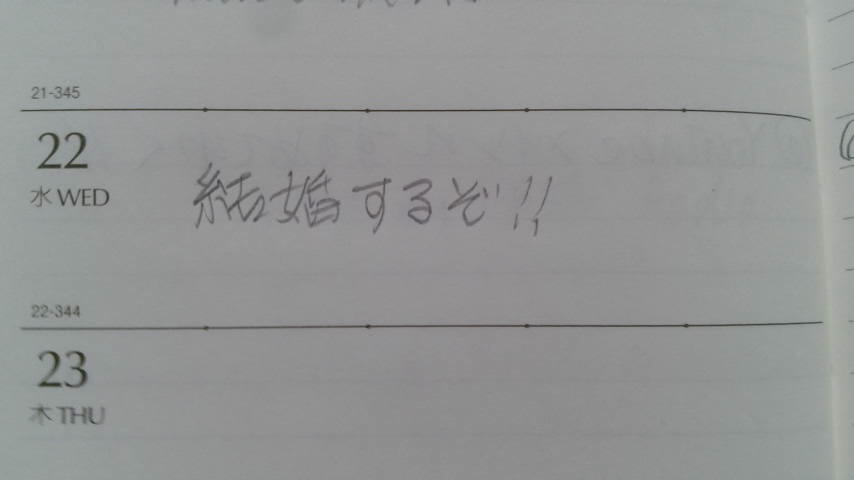 21-345
22
水 WED
結婚するぞ!!
22-344
23
木 THU